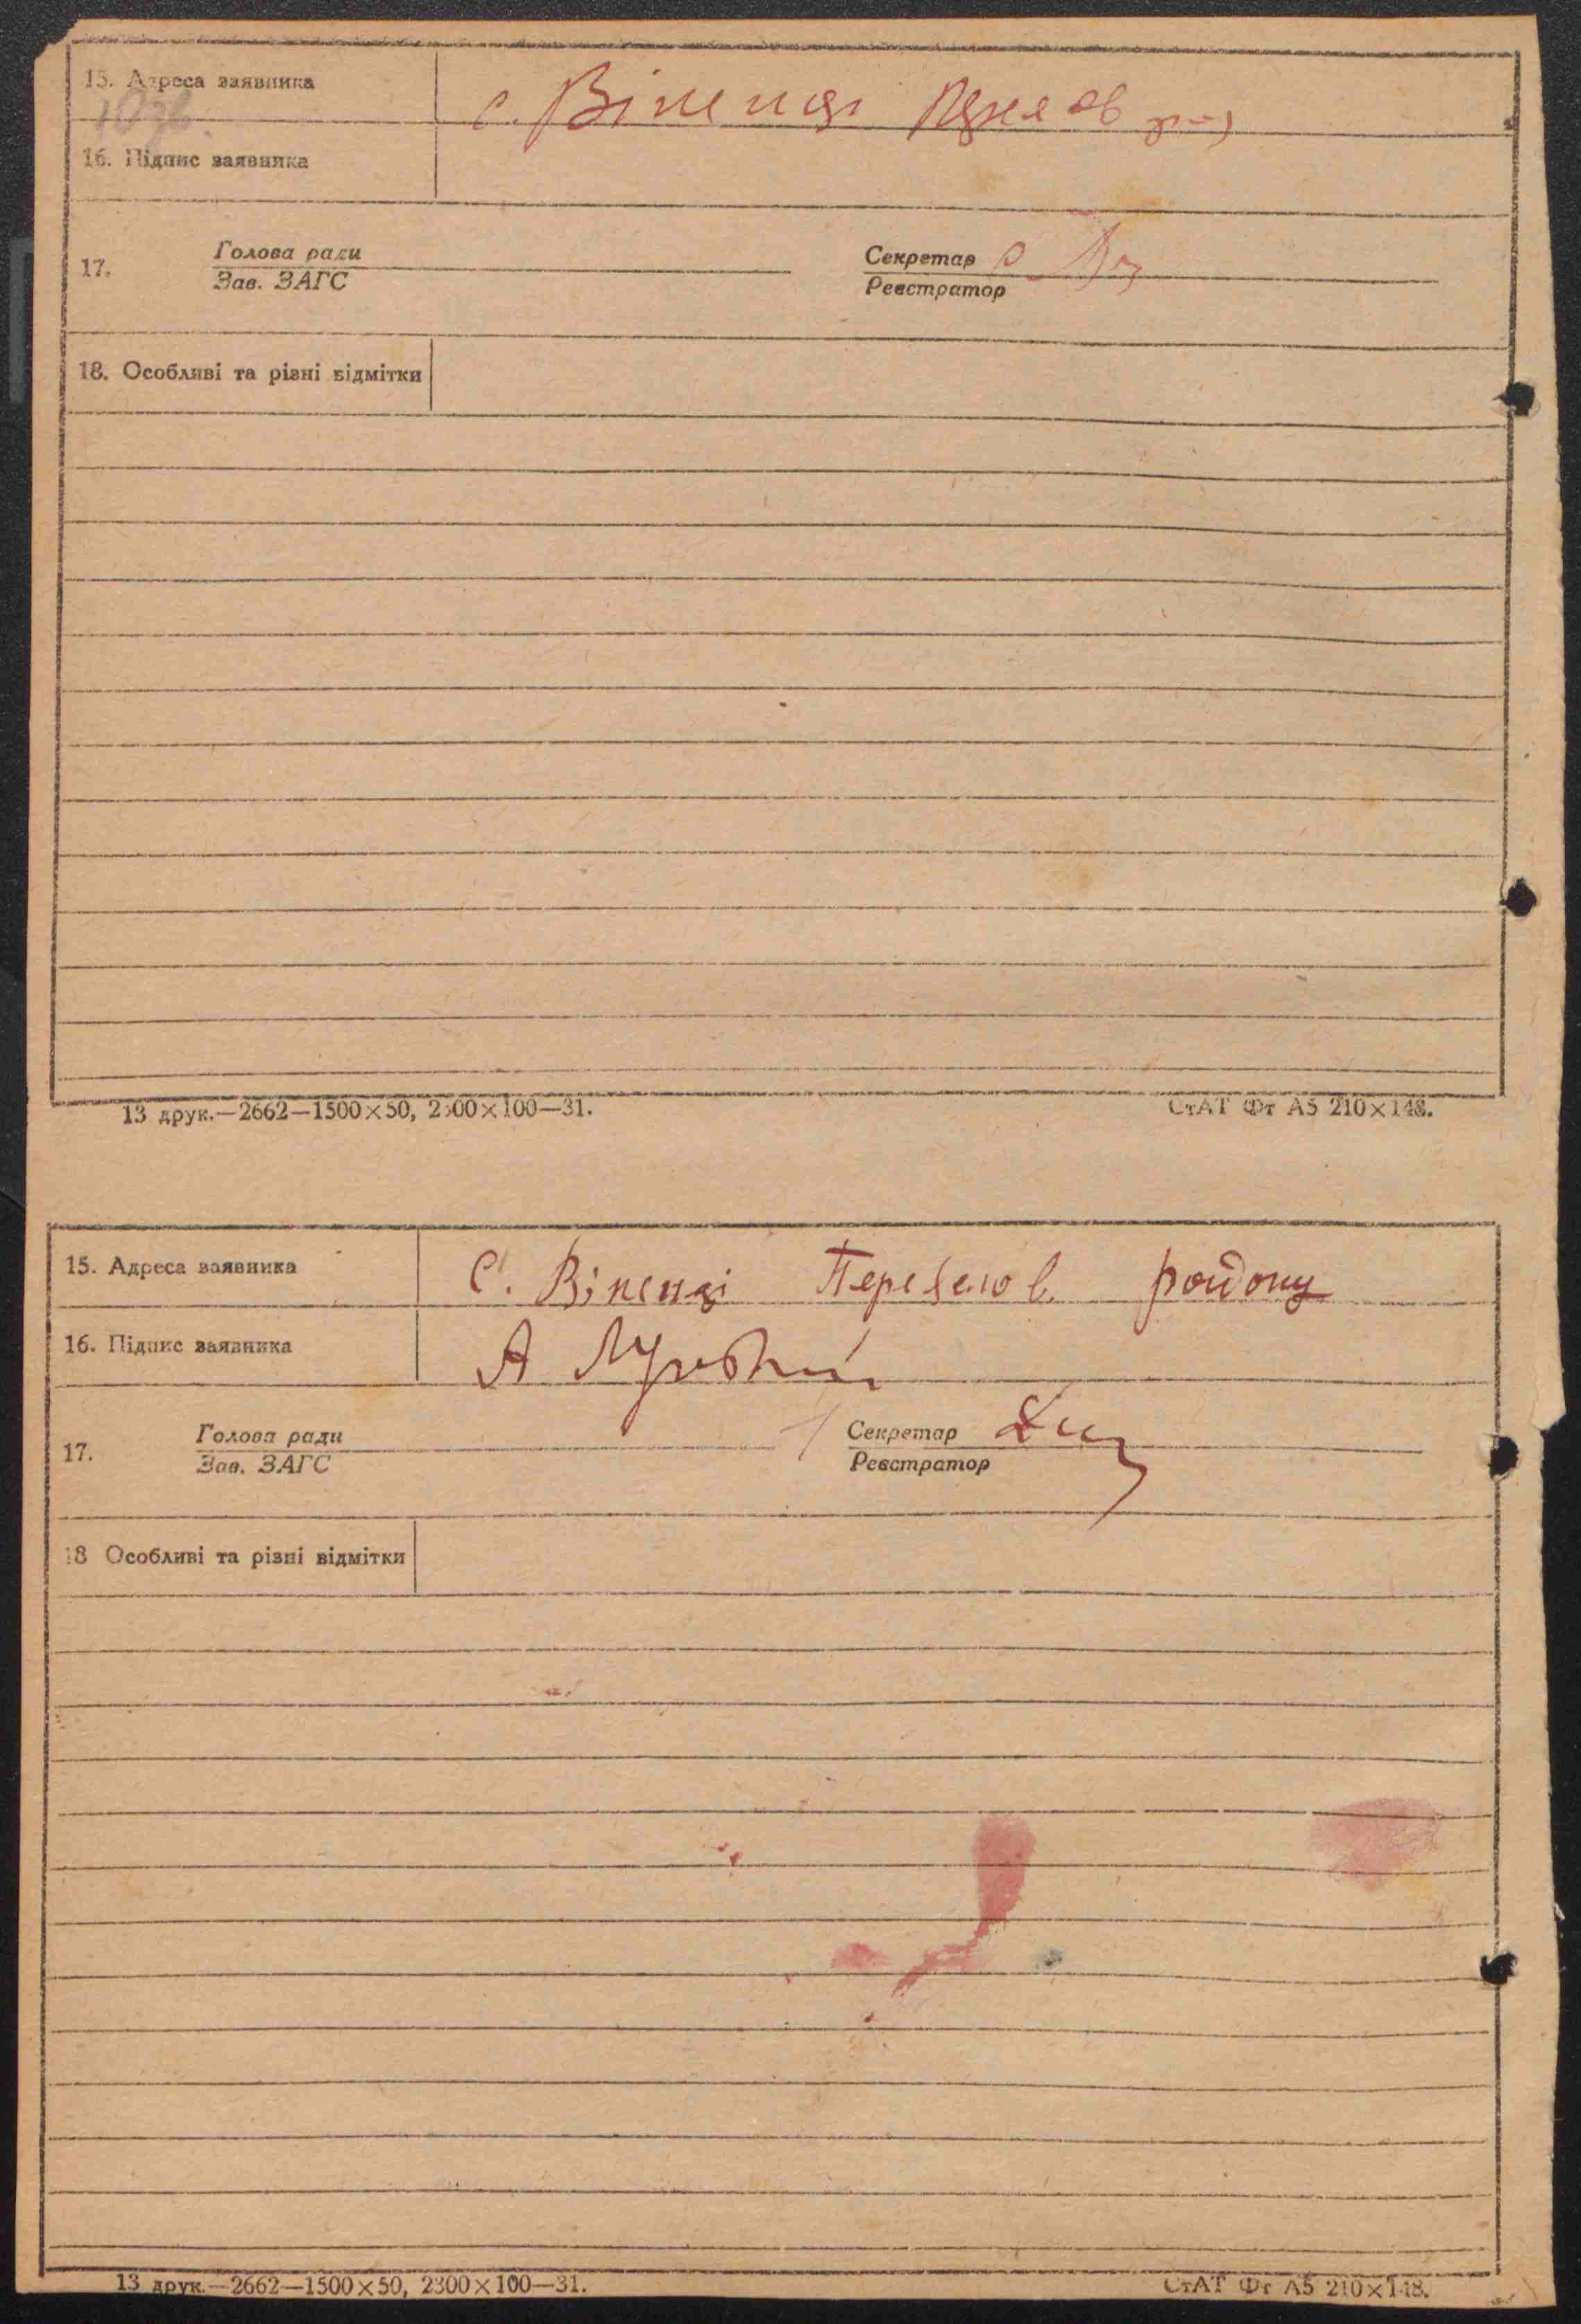 15. Адреса заявника с. Віненці
16. Підпис заявника
17. Голова ради Секретар
Зав. ЗАГС Реєстратор
18. Особливі та різні відмітки
13 друк.—2662—1500×50, 2300×100—31. СтАТ Фт А5 210×148.
15. Адреса заявника С. Віненці Переялов. району
16. Підпис заявника А
17. Голова ради Секретар
Зав. ЗАГС Реєстратор
18 Особливі та різні відмітки
13 друк.—2662—1500×50, 2300×100—31. СтАТ Фт А5 210×148.